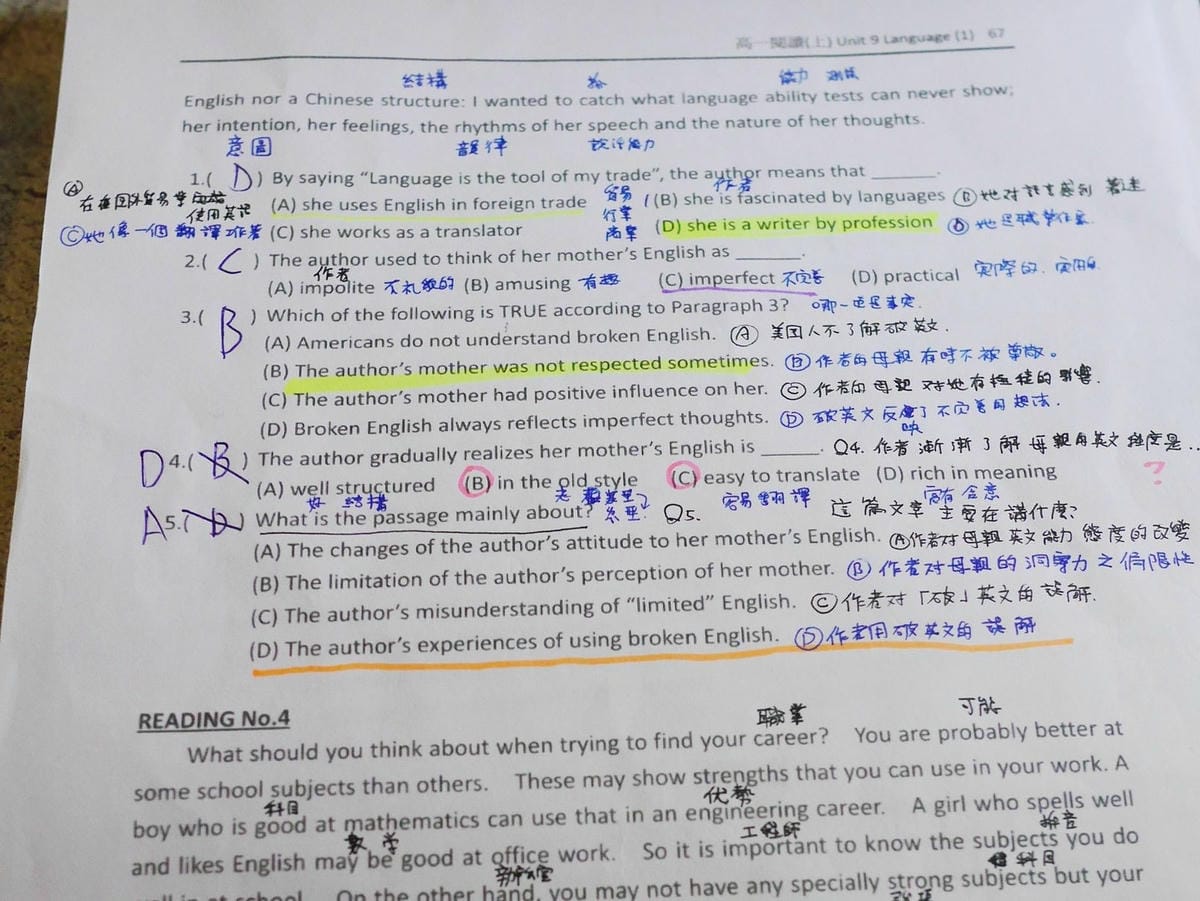 高一閱讀(上) Unit 9 Language (1) 67
結構 能力
English nor a Chinese structure: I wanted to catch what language ability tests can never show;
her intention, her feelings, the rhythms of her speech and the nature of her thoughts.
意圖 韻律 說話能力
1.( D ) By saying “Language is the tool of my trade”, the author means that ______.
作者
Ⓐ 使用英語 (A) she uses English in foreign trade 貿易 行業 商業 (B) she is fascinated by languages Ⓑ她对語言感到着迷
Ⓒ她像一個翻譯工作著 (C) she works as a translator (D) she is a writer by profession Ⓓ 她是職業作家
2.( C ) The author used to think of her mother’s English as ______.
作者
(A) impolite 不礼貌的 (B) amusing 有趣 (C) imperfect 不完善 (D) practical 実際的.実用的
3.( B ) Which of the following is TRUE according to Paragraph 3?
(A) Americans do not understand broken English. Ⓐ 美国人不了解破英文.
(B) The author’s mother was not respected sometimes. Ⓑ作者的母親有時不被尊敬。
(C) The author’s mother had positive influence on her. Ⓒ 作者的母親对她有極徍的影響.
(D) Broken English always reflects imperfect thoughts. Ⓓ 破英文反應了不完善的想法.
映
D 4.( B ) The author gradually realizes her mother’s English is ______. Q4. 作者漸漸了解母親的英文程度是..
(A) well structured (B) in the old style (C) easy to translate (D) rich in meaning ?
好 結構 容易翻譯 富有含意
A 5.( D ) What is the passage mainly about? Q5. 這篇文章主要在講什麼?
(A) The changes of the author’s attitude to her mother’s English. Ⓐ作者对母親英文能力態度的改變
(B) The limitation of the author’s perception of her mother. Ⓑ 作者对母親的洞察力之侷限性
(C) The author’s misunderstanding of “limited” English. Ⓒ作者对「破」英文的誤解.
(D) The author’s experiences of using broken English. Ⓓ作者用破英文的誤解
READING No.4
職業 可能
What should you think about when trying to find your career? You are probably better at
some school subjects than others. These may show strengths that you can use in your work. A
科目 优勢
boy who is good at mathematics can use that in an engineering career. A girl who spells well
數學 工程師 拼音
and likes English may be good at office work. So it is important to know the subjects you do
辦公室 科目
well in at school. On the other hand, you may not have any specially strong subjects but your